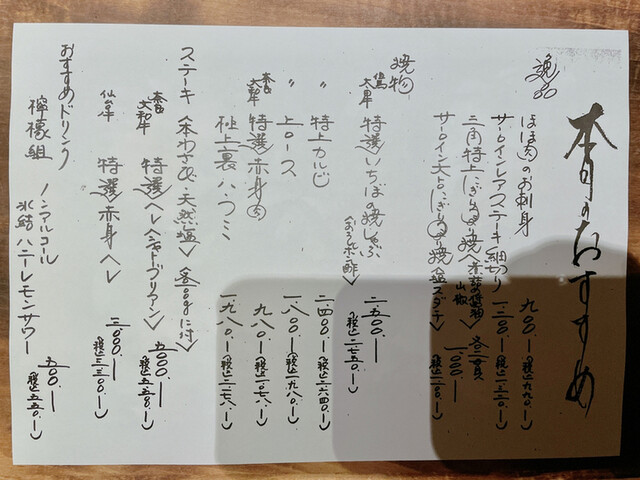 本日のおすすめ
逸品
ほほ肉のお刺身 九〇〇.― (税込九九〇.―)
サーロインレアステーキ細切り 一、二〇〇.― (税込一、三二〇.―)
三角特上にぎり炙り焼 山椒 各二貫
サーロイン大とろにぎり炙り焼 塩スダチ 一、〇〇〇.― (税込一、一〇〇.―)
焼物
特選いちぼの焼しゃぶ (おろしポン酢) 二、五〇〇.― (税込二、七五〇.―)
〃 特上カルビ 二、四〇〇.― (税込二、六四〇.―)
〃 上ロース 一、八〇〇.― (税込一、九八〇.―)
特選赤身 九八〇.― (税込一、〇七八.―)
極上裏ハラミ 一、九八〇.― (税込二、一七八.―)
ステーキ (本わさび・天然塩) 各80gに付
大和牛 特選ヘレ(シャトブリアン) 五、〇〇〇.― (税込五、五〇〇.―)
仙台牛 特選赤身ヘレ 三、〇〇〇.― (税込三、三〇〇.―)
おすすめドリンク
檸檬組 ノンアルコール
氷結ハニーレモンサワー 五〇〇.― (税込五五〇.―)